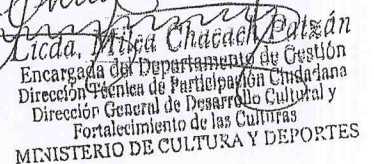 Licda. Milca Chacach Patzán
Encargada del Departamento de Gestión
Dirección Técnica de Participación Ciudadana
Dirección General de Desarrollo Cultural y
Fortalecimiento de las Culturas
MINISTERIO DE CULTURA Y DEPORTES